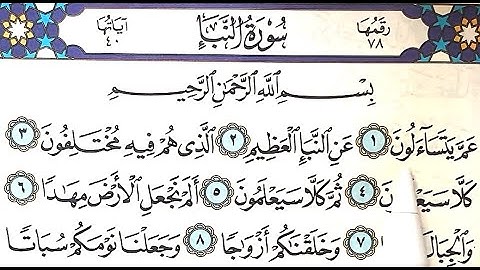 رقمها ٧٨ سورة النبإ آياتها ٤٠
بِسْمِ اللَّهِ الرَّحْمَٰنِ الرَّحِيمِ
عَمَّ يَتَسَاءَلُونَ ١ عَنِ النَّبَإِ الْعَظِيمِ ٢ الَّذِي هُمْ فِيهِ مُخْتَلِفُونَ ٣
كَلَّا سَيَعْ ن ٤ ثُمَّ كَلَّا سَيَعْلَمُونَ ٥ أَلَمْ نَجْعَلِ الْأَرْضَ مِهَادًا ٦
وَالْجِبَالَ ا ٧ وَخَلَقْنَاكُمْ أَزْوَاجًا ٨ وَجَعَلْنَا نَوْمَكُمْ سُبَاتًا